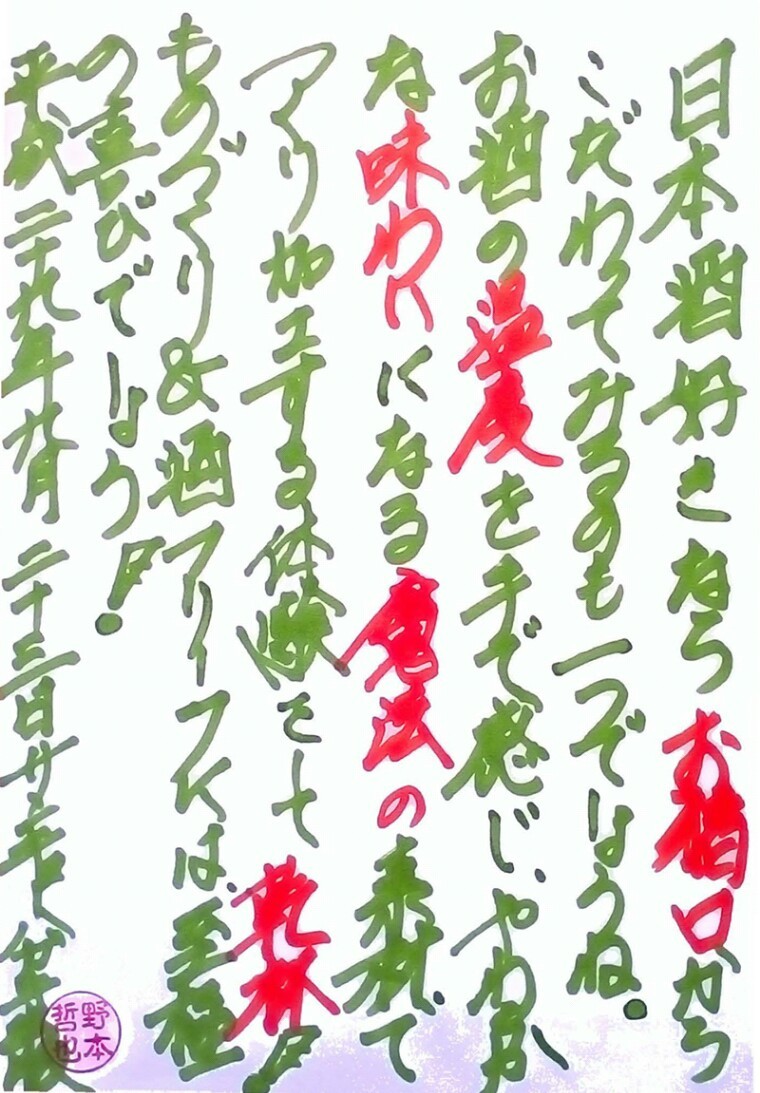 日本酒好きならお猪口から
こだわってみるのも一つでしょうね。
お酒の温度を手で感じ、やわらか
な味わいになる魔法の素材で
つくり加工する体験をして乾杯!
ものづくり&酒フリークには、至極
の喜びでしょう!
平成二十九年九月二十三日
野本
哲也